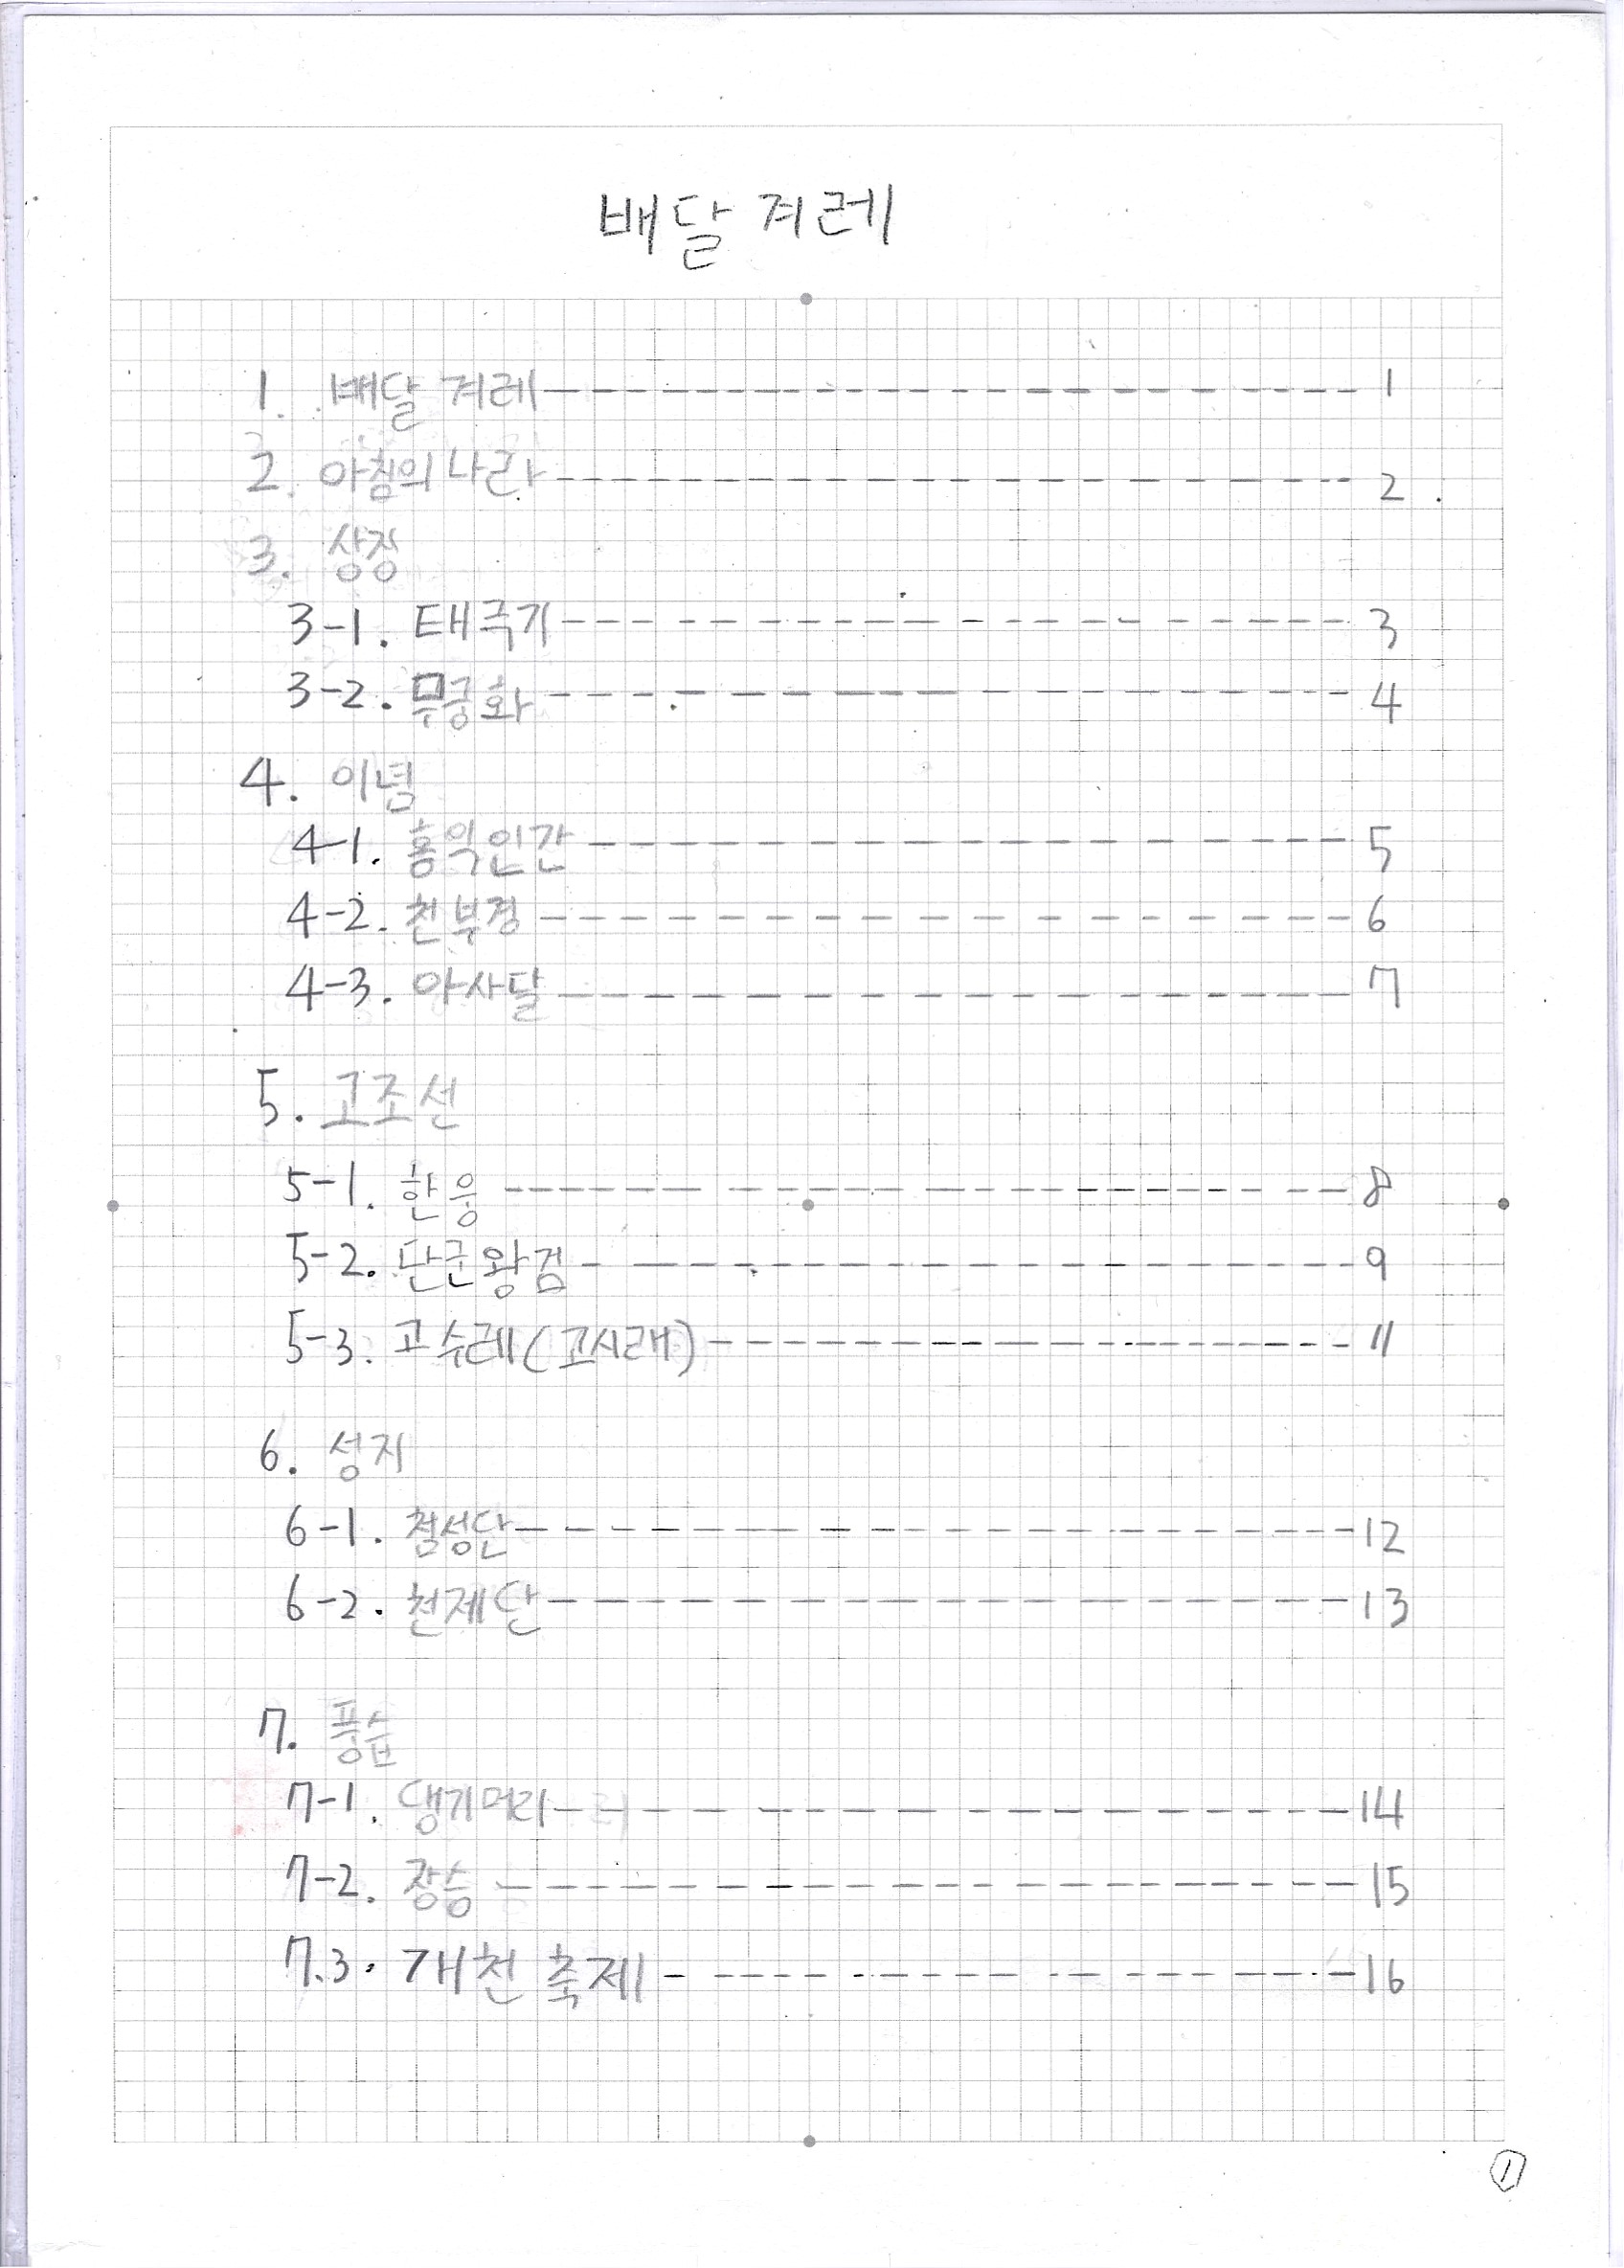 배달 겨레
1. 배달 겨레 1
2. 아침의 나라 2
3. 상징
3-1. 태극기 3
3-2. 무궁화 4
4. 이념
4-1. 홍익인간 5
4-2. 천부경 6
4-3. 아사달 7
5. 고조선
5-1. 한웅 8
5-2. 단군왕검 9
5-3. 고수레(고시래) 11
6. 성지
6-1. 참성단 12
6-2. 천제단 13
7. 풍습
7-1. 댕기머리 14
7-2. 장승 15
7.3. 개천 축제 16
1